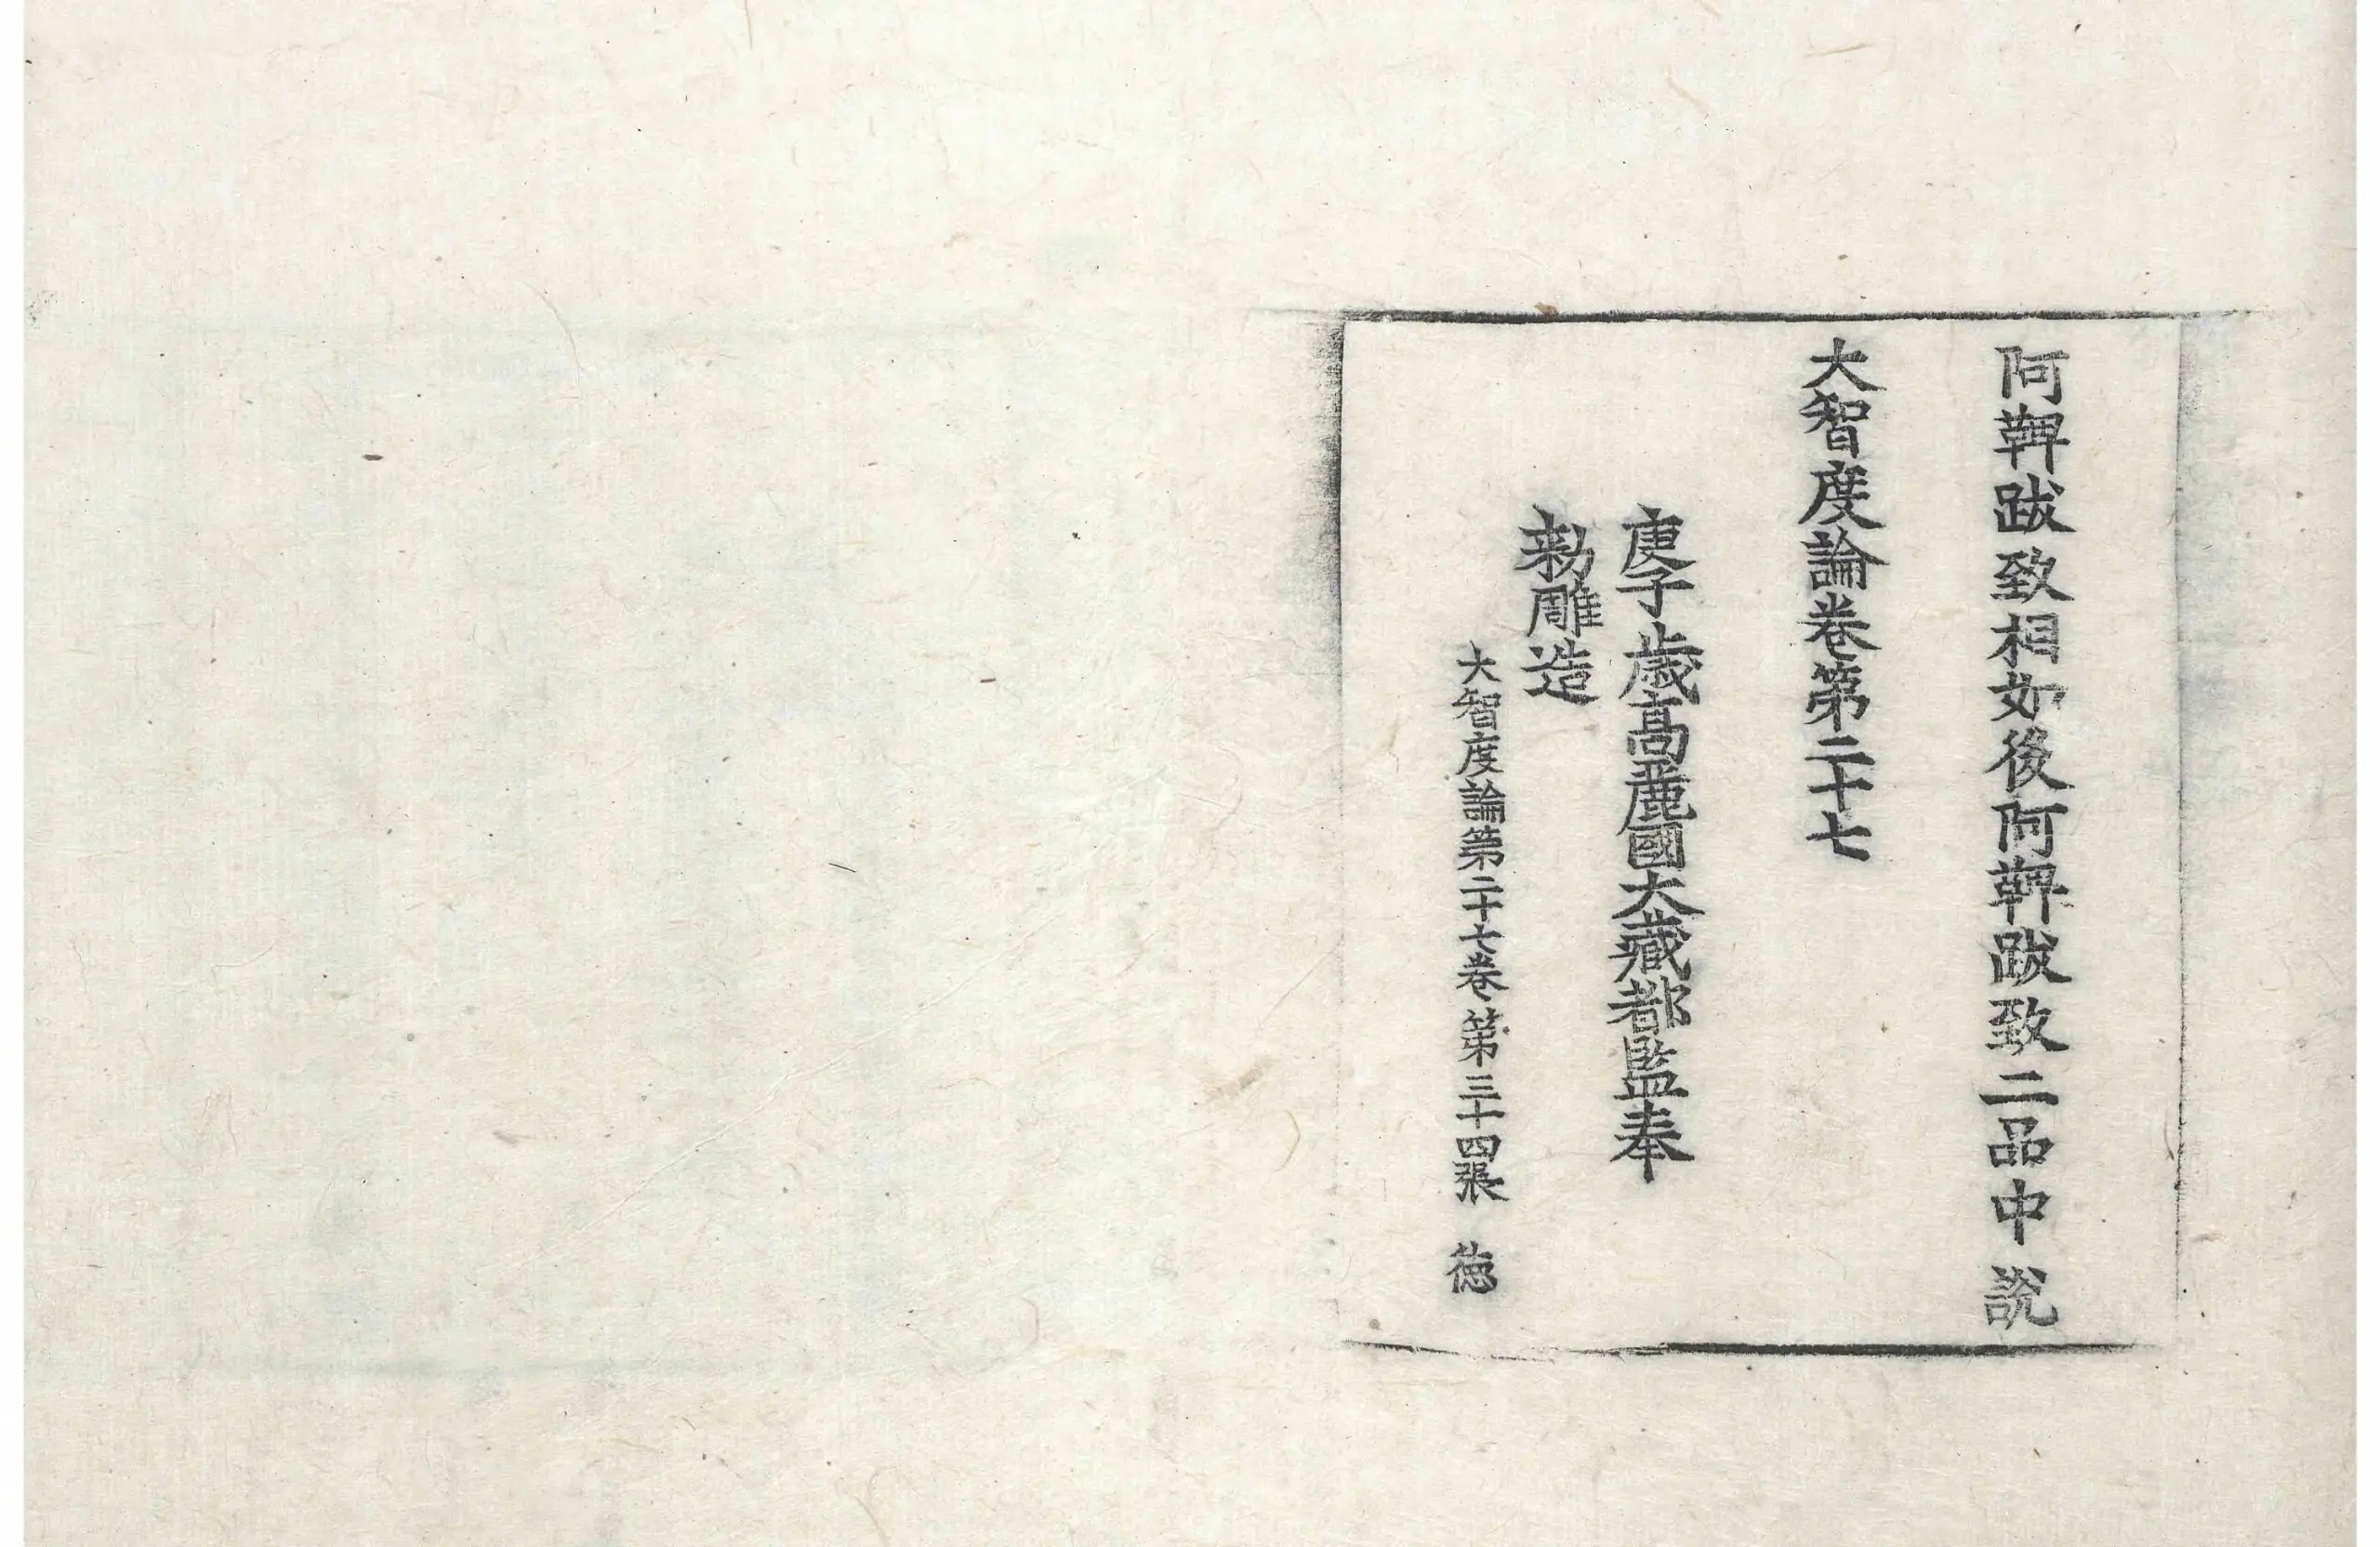 阿鞞跋致相如後阿鞞跋致二品中說
大智度論卷第二十七
庚子歲高麗國大藏都監奉
勅雕造
大智度論第二十七卷 第三十四張 德